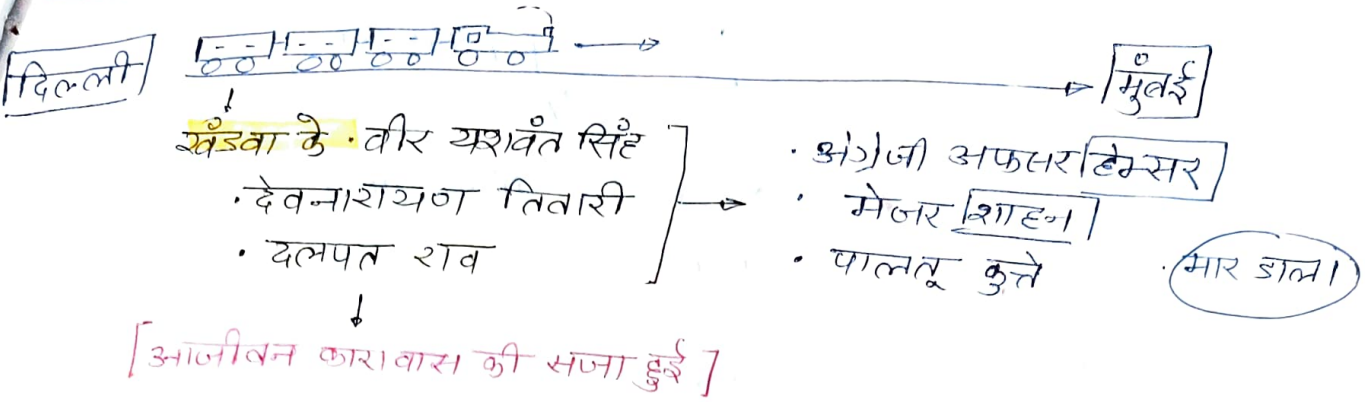 दिल्ली
मुंबई
खँडवा के · वीर यशवंत सिंह
· देवनारायण तिवारी
· दलपत राव
· अंग्रेजी अफसर हेम्सर
· मेजर शाहन
· पालतू कुत्ते
· मार डाला
[आजीवन कारावास की सजा हुई]